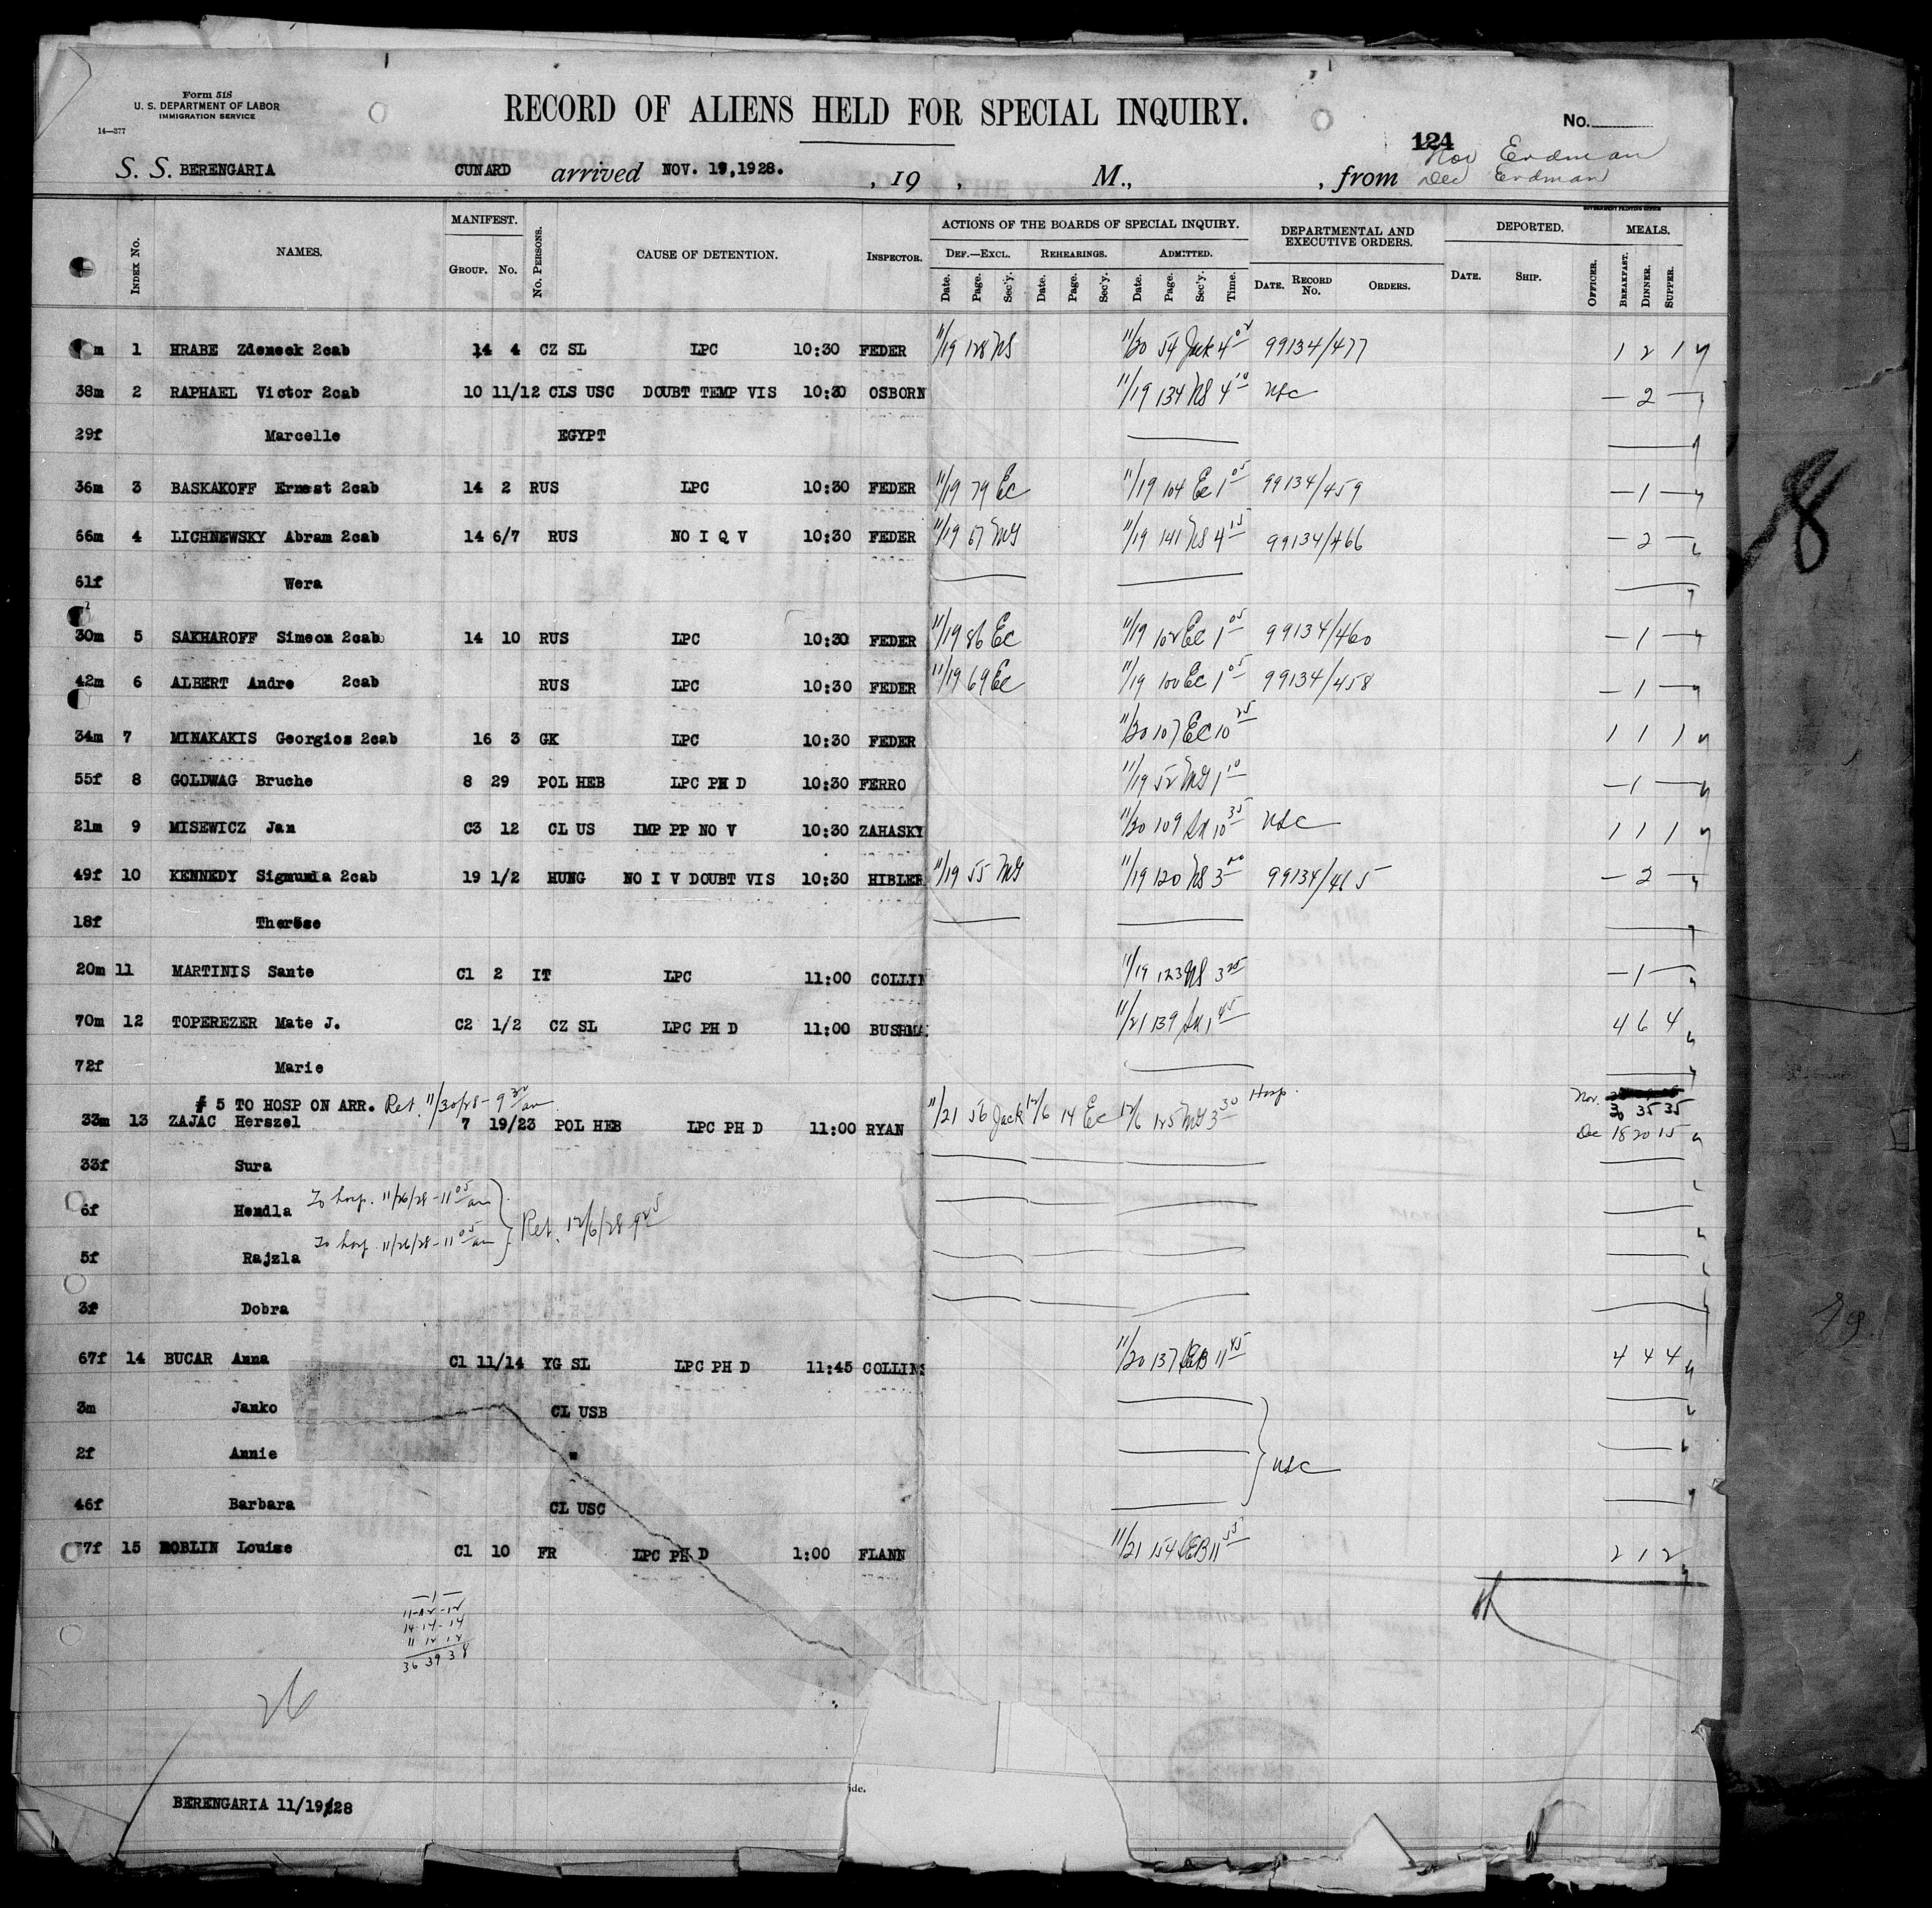 Form 518
U. S. DEPARTMENT OF LABOR
IMMIGRATION SERVICE
14—377
RECORD OF ALIENS HELD FOR SPECIAL INQUIRY.
No.
124
Nov Erdman
S. S. BERENGARIA CUNARD arrived NOV. 19,1928. , 19 , M., , from Dec Erdman
GOVERNMENT PRINTING OFFICE
Index No. NAMES. MANIFEST. Group. No. No. Persons. CAUSE OF DETENTION. Inspector. ACTIONS OF THE BOARDS OF SPECIAL INQUIRY. Def.—Excl. Date. Page. Sec'y. Rehearings. Date. Page. Sec'y. Admitted. Date. Page. Sec'y. Time. DEPARTMENTAL AND EXECUTIVE ORDERS. Date. Record No. Orders. DEPORTED. Date. Ship. Officer. MEALS. Breakfast. Dinner. Supper.
m 1 HRABE Zdeneck 2cab 14 4 CZ SL LPC 10:30 FEDER 11/19 128 NS 11/20 54 Jack 4 99134/477 1 2 1
38m 2 RAPHAEL Victor 2cab 10 11/12 CLS USC DOUBT TEMP VIS 10:30 OSBORN 11/19 134 NS 4 10 USC — 2 —
29f Marcelle EGYPT
36m 3 BASKAKOFF Ernest 2cab 14 2 RUS LPC 10:30 FEDER 11/19 79 EC 11/19 104 EC 1 05 99134/459 — 1 —
66m 4 LICHNEWSKY Abram 2cab 14 6/7 RUS NO I Q V 10:30 FEDER 11/19 67 MG 11/19 141 NS 4 15 99134/466 — 2 —
61f Wera
30m 5 SAKHAROFF Simeon 2cab 14 10 RUS LPC 10:30 FEDER 11/19 86 EC 11/19 102 EC 1 05 99134/460 — 1 —
42m 6 ALBERT Andre 2cab RUS LPC 10:30 FEDER 11/19 69 EC 11/19 100 EC 1 05 99134/458 — 1 —
34m 7 MINAKAKIS Georgios 2cab 16 3 GK LPC 10:30 FEDER 11/20 107 EC 10 25 1 1 1
55f 8 GOLDWAG Bruche 8 29 POL HEB LPC PH D 10:30 FERRO 11/19 52 MG 1 10 — 1 —
21m 9 MISEWICZ Jan C3 12 CL US IMP PP NO V 10:30 ZAHASKY 11/20 109 10 35 USC 1 1 1
49f 10 KENNEDY 2cab 19 1/2 HUNG NO I V DOUBT VIS 10:30 HIBLER 11/19 55 MG 11/19 120 NS 3 00 99134/465 — 2 —
18f Therese
20m 11 MARTINIS Sante C1 2 IT LPC 11:00 COLLIN 11/19 123 NS 3 25 — 1 —
70m 12 TOPEREZER Mate J. C2 1/2 CZ SL LPC PH D 11:00 BUSHMA 11/21 139 1 45 4 6 4
72f Marie
# 5 TO HOSP ON ARR. Ret. 11/30/28 - 9 30 am Hosp. Nov. 30 35 35
33m 13 ZAJAC Herszel 7 19/23 POL HEB LPC PH D 11:00 RYAN 11/21 56 Jack 12/6 14 EC 12/6 125 MG 3 30 Dec 18 20 15
33f Sura
6f Hendla To hosp. 11/26/28 - 11 05 am
Ret. 12/6/28 9 25
5f Rajzla To hosp. 11/26/28 - 11 05 am
3f Dobra
67f 14 BUCAR Anna C1 11/14 YG SL LPC PH D 11:45 COLLINS 11/20 137 SEB 11 45 4 4 4
3m Janko CL USB
2f Annie " USC
46f Barbara CL USC
77f 15 ROBLIN Louise C1 10 FR LPC PH D 1:00 FLANN 11/21 154 SEB 11 55 2 1 2
— 1 —
11-12-12
14-14-14
11 12 12
36 39 38
26
ide.
BERENGARIA 11/19/28
8